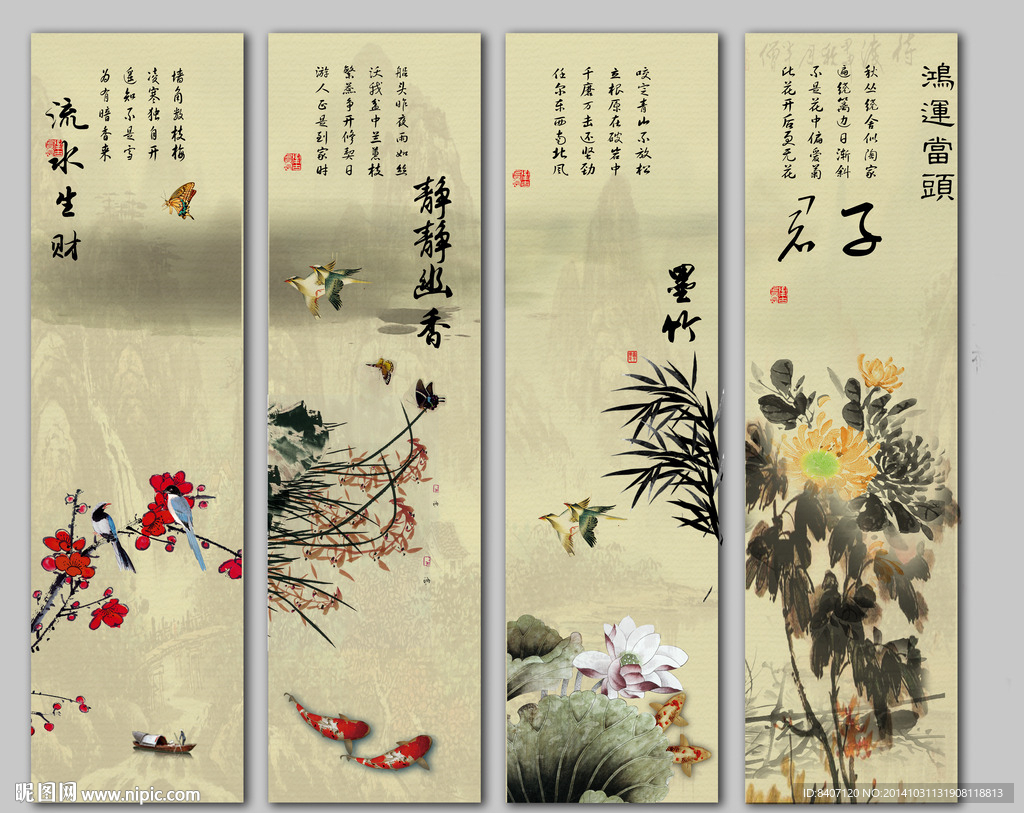 流水生财
墙角数枝梅
凌寒独自开
遥知不是雪
为有暗香来
船头昨夜雨如丝
沃我盆中兰蕙枝
繁蕊争开修禊日
游人正是到家时
静静幽香
咬定青山不放松
立根原在破岩中
千磨万击还坚劲
任尔东西南北风
墨竹
鸿运當頭
秋丛绕舍似陶家
遍绕篱边日渐斜
不是花中偏爱菊
此花开后更无花
君子
昵图网 www.nipic.com
ID:8407120 NO:20141031131908118813